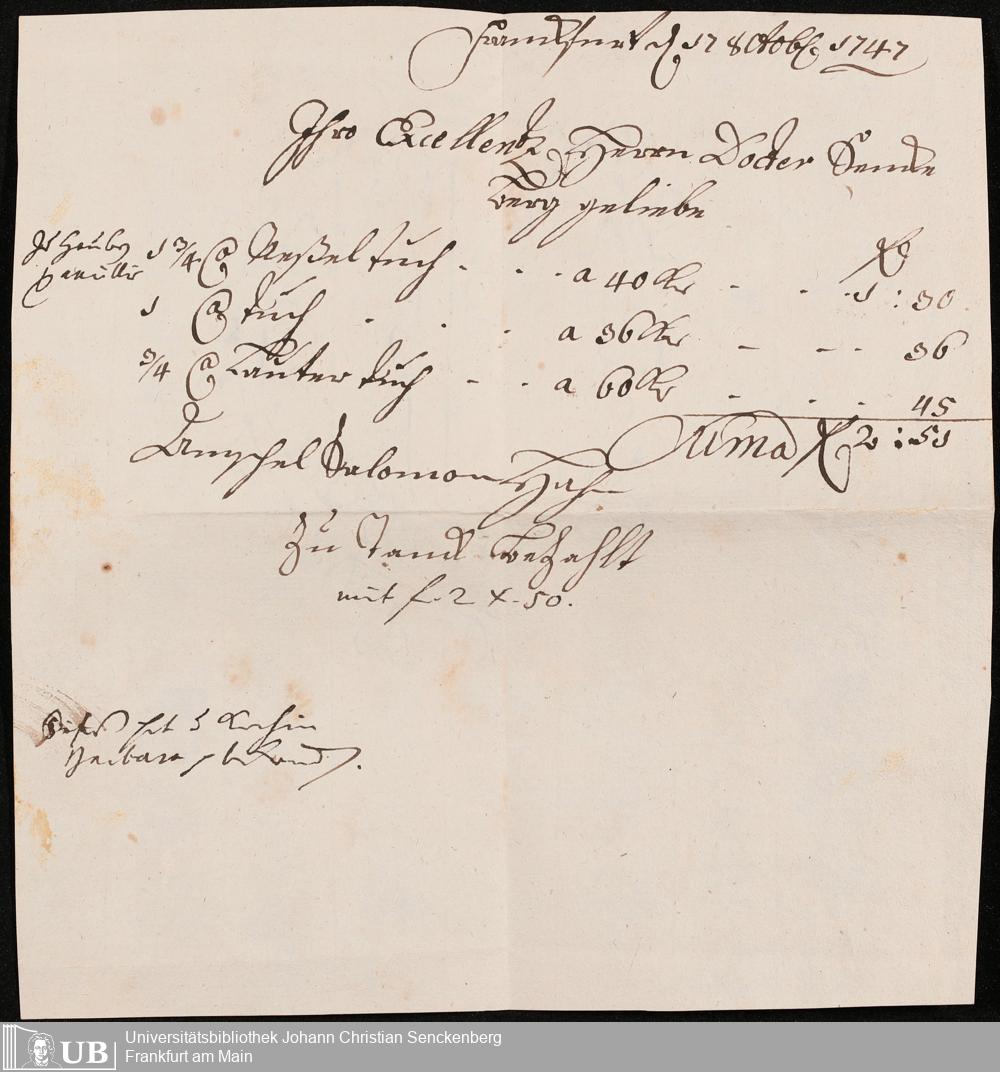 Franckfurt d. 17 8Octobr. 1747
Ihro Excellentz Herrn Docter Sencke
berg geliebe
1 3/4 Neßel tuch . . . a 40 kr . . . 1 : 30
1 tuch . . . a 36 kr — — — 36
3/4 Lauter tuch - . . a 60 kr . . . 45
Suma 2 : 51
Amschel Salomon Hahn
Zu Danck bezahlt
mit f. 2 x. 50.
hat d Köchin
Universitätsbibliothek Johann Christian Senckenberg
UB Frankfurt am Main